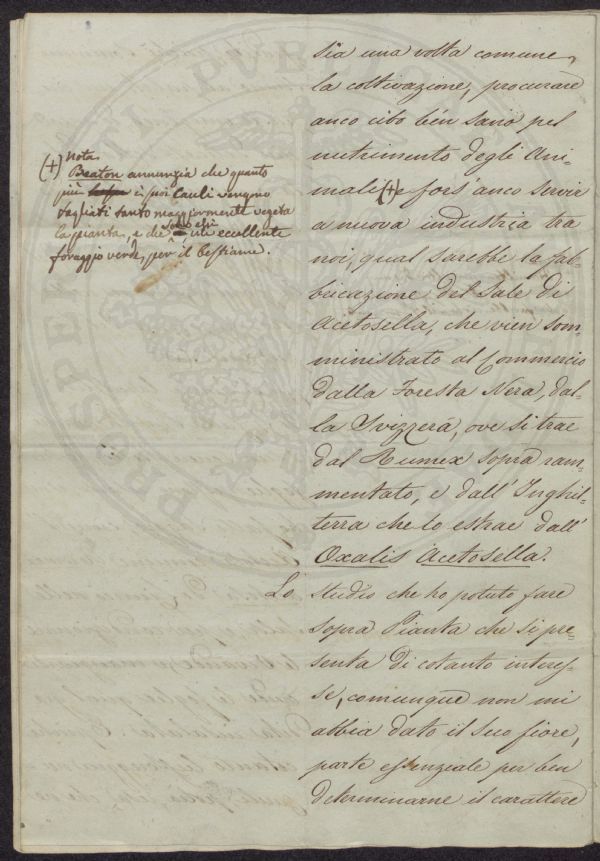 sia una volta comune,
la coltivazione, procurare
anco cibo ben sano pel
nutrimento degli Ani-
mali (+) e fors' anco servir
a nuova industria tra
noi, qual sarebbe la fab-
bricazione del Sale di
Acetosella, che vien som-
ministrato al Commercio
dalla Foresta Nera, dal-
la Svizzera, ove si trae
dal Rumex sopra ram-
mentato, e dall' Inghil-
terra che lo estrae dall'
Oxalis Acetosella.
Lo studio che ho potuto fare
sopra Pianta che si pre-
senta di cotanto interes-
se, comunque non mi
abbia dato il suo fiore,
parte essenziale per ben
determinarne il carattere
(+) Nota.
Beaton annunzia che quanto
più i suoi Cauli vengono
tagliati tanto maggiormente vegeta
la pianta, e che sono un eccellente
foraggio verde, per il bestiame.